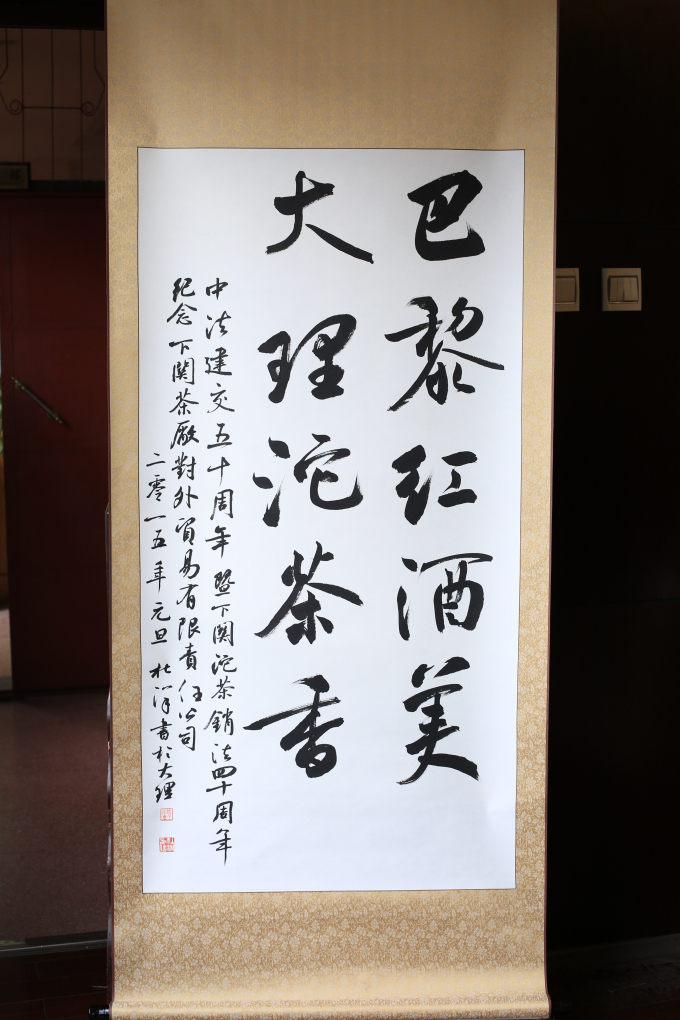 巴黎红酒美
大理沱茶香
中法建交五十周年暨下関沱茶銷法四十周年
纪念下関茶廠對外貿易有限責任公司
二零一五年元旦杜洋書於大理